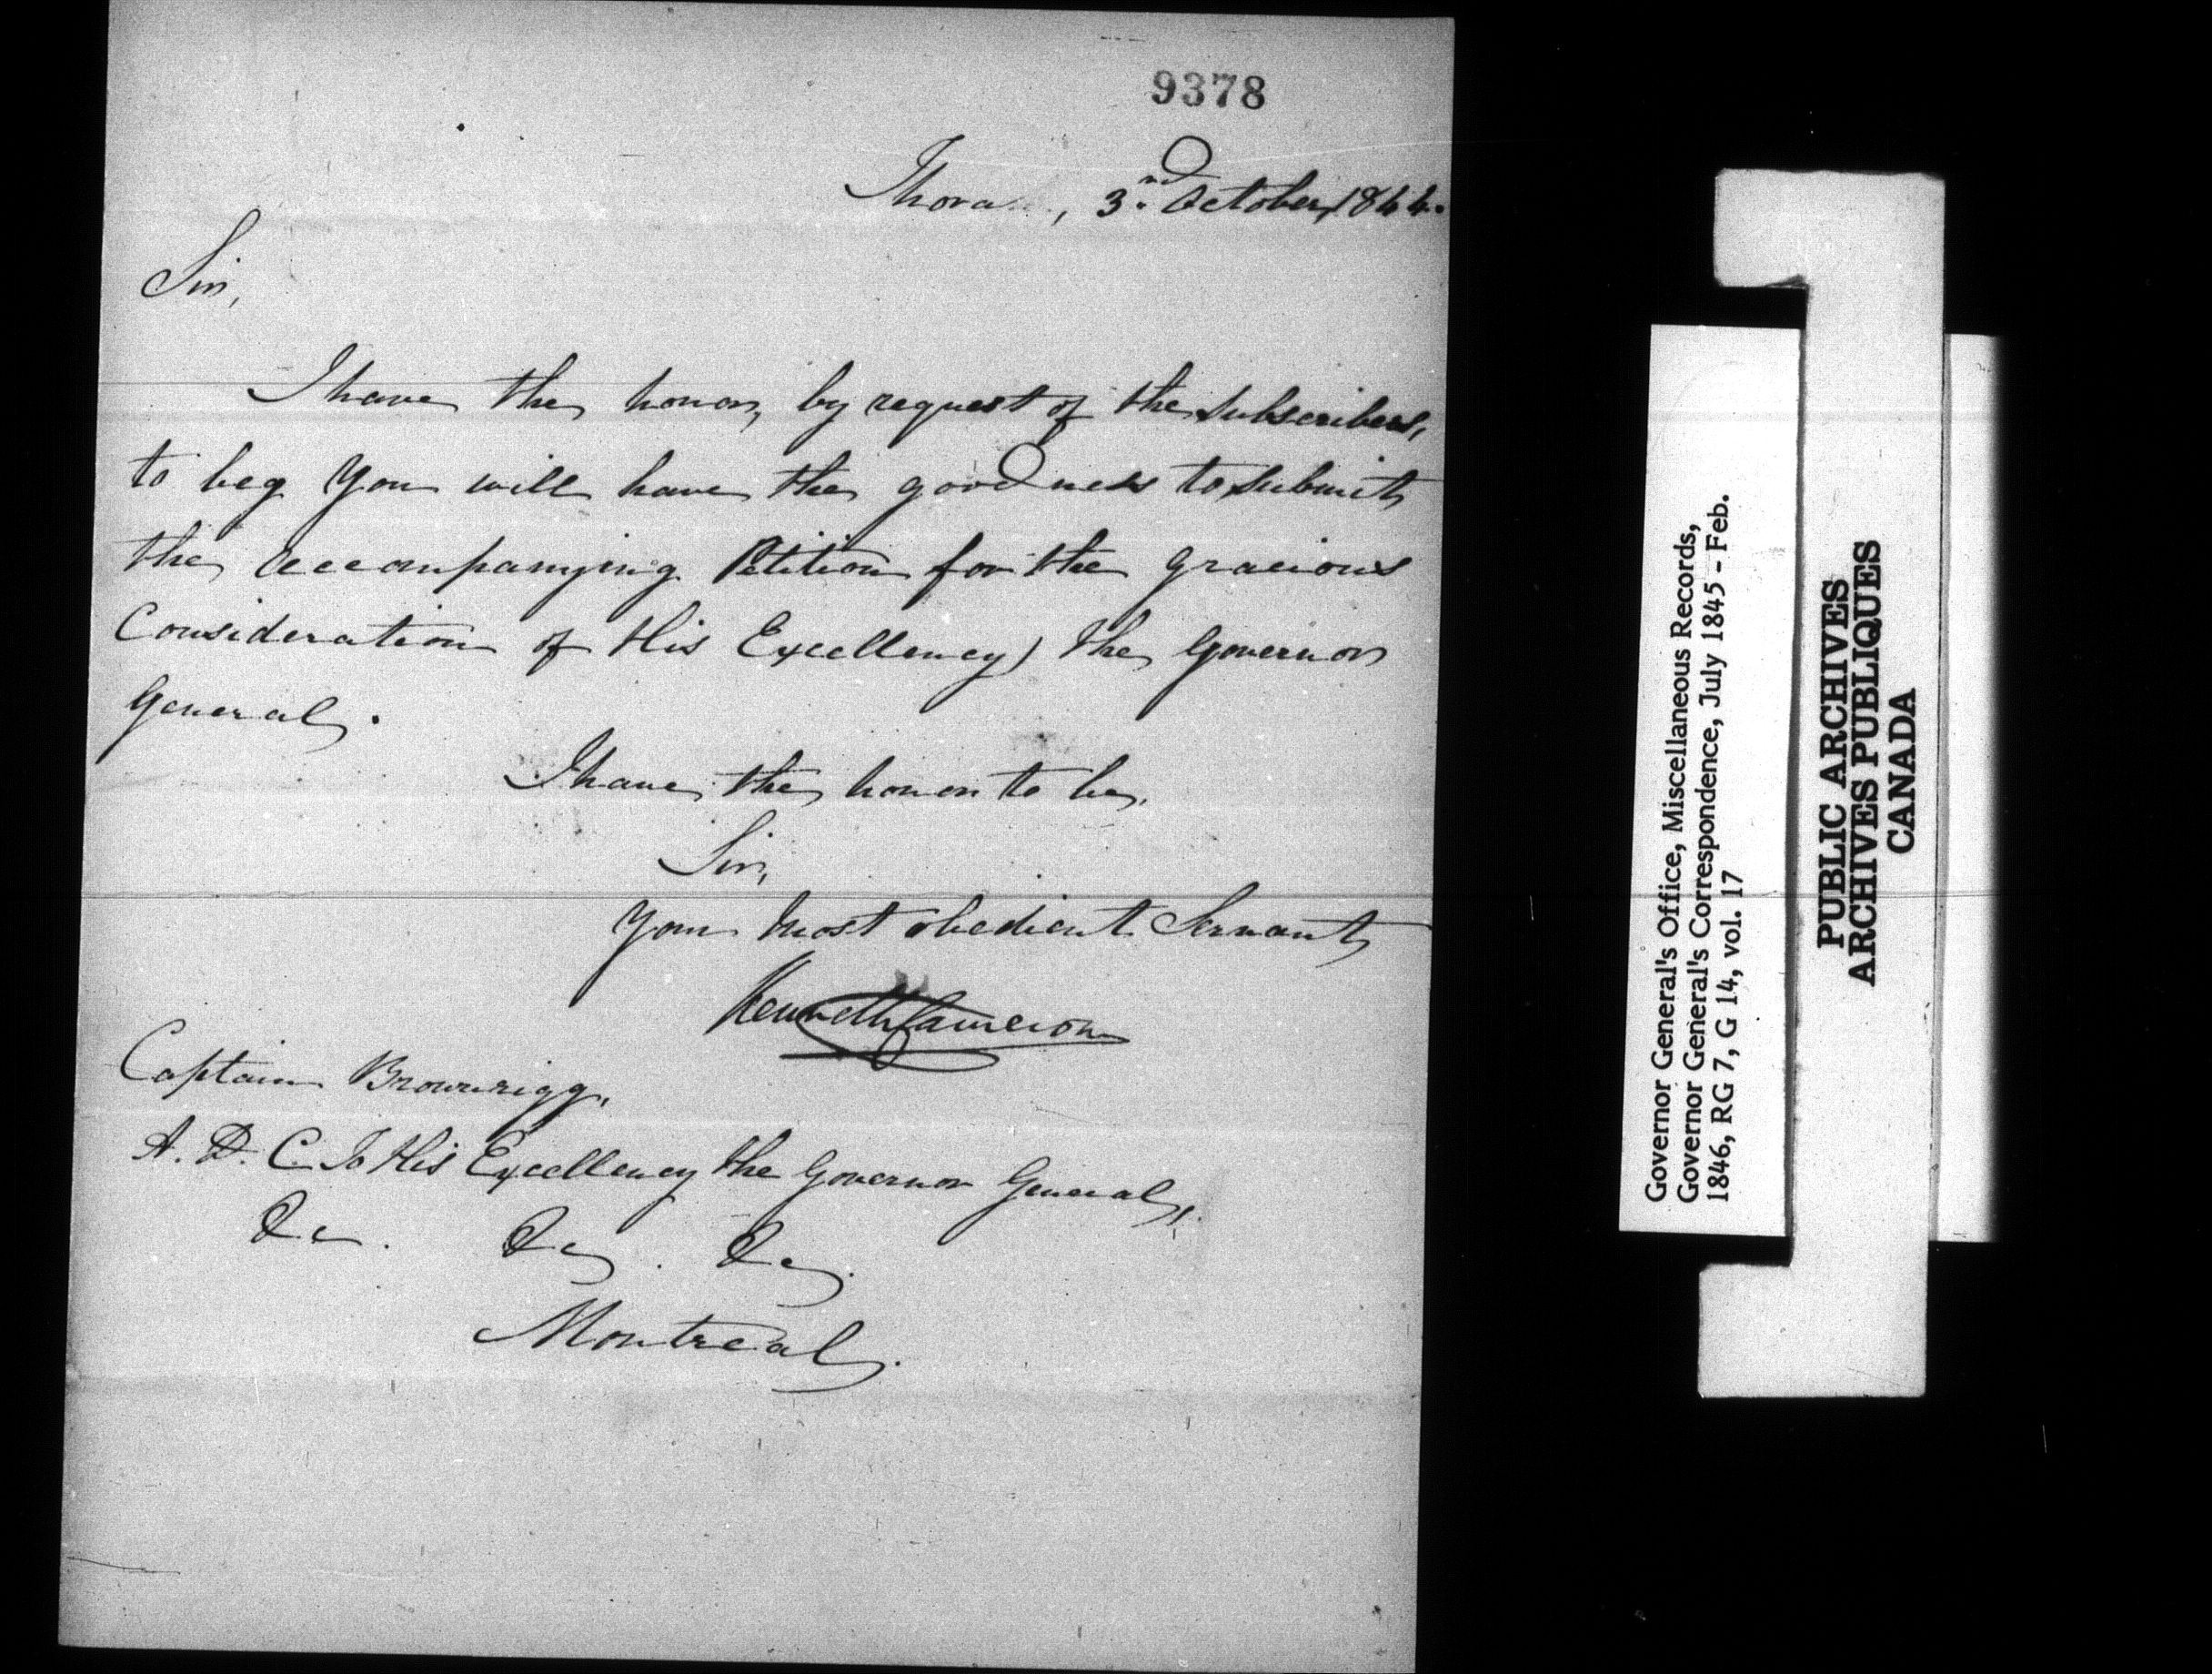 9378
Thorah, 3rd October, 1844.
Sir,
I have the honor, by request of the Subscribers,
to beg you will have the goodness to submit
the accompanying Petition for the gracious
Consideration of His Excellency the Governor
General.
I have the honor to be,
Sir,
Your most obedient Servant
Kenneth Cameron
Captain Brownrigg,
A. D. C. To His Excellency the Governor General,
&c. &c. &c.
Montreal.
Governor General's Office, Miscellaneous Records,
Governor General's Correspondence, July 1845 - Feb.
1846, RG 7, G 14, vol. 17
PUBLIC ARCHIVES
ARCHIVES PUBLIQUES
CANADA